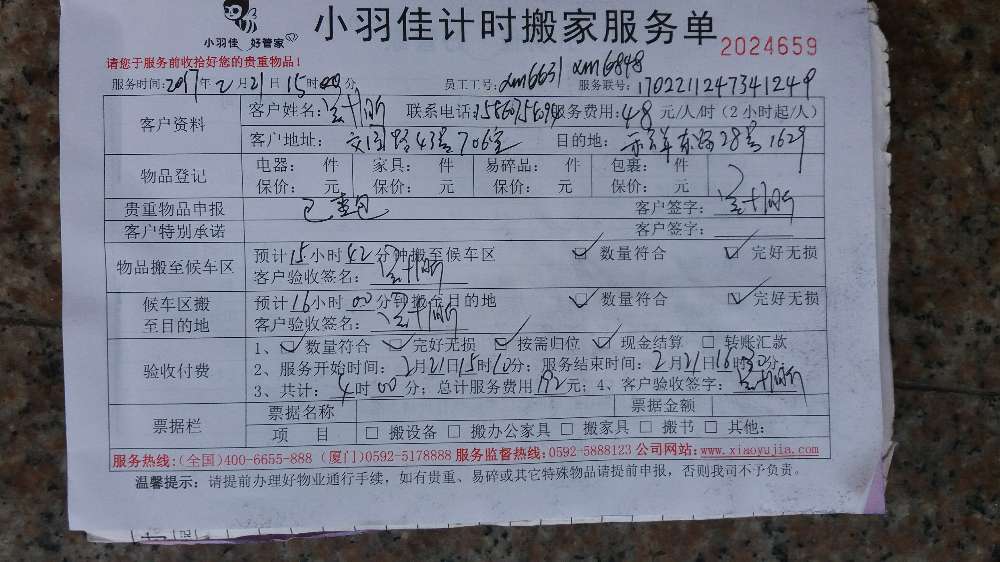 小羽佳 好管家
小羽佳计时搬家服务单
2024659
请您于服务前收拾好您的贵重物品!
服务时间:2017年2月21日15时00分 员工工号:xm6631 xm6848 服务联号:1702211247341249
客户资料
客户姓名: 联系电话: 服务费用:48元/人/时(2小时起/人)
客户地址: 43号706室 目的地: 东路28号1629
物品登记
电器: 件 家具: 件 易碎品: 件 包裹: 件
保价: 元 保价: 元 保价: 元 保价: 元
贵重物品申报 已查包 客户签字:
客户特别承诺 客户签字:
物品搬至候车区
预计15小时42分钟搬至候车区 ☑ 数量符合 ☑ 完好无损
客户验收签名:
候车区搬
至目的地
预计16小时00分钟搬至目的地 ☑ 数量符合 ☑ 完好无损
客户验收签名:
验收付费
1、☑ 数量符合 ☑ 完好无损 ☑ 按需归位 ☑ 现金结算 □ 转账汇款
2、服务开始时间:2月21日15时10分; 服务结束时间:2月21日16时30分;
3、共计:4时00分; 总计服务费用192元; 4、客户验收签字:
票据栏
票据名称 票据金额
项 目 □ 搬设备 □ 搬办公家具 □ 搬家具 □ 搬书 □ 其他:
服务热线:(全国)400-6655-888 (厦门)0592-5178888 服务监督热线:0592-5888123 公司网站:www.xiaoyujia.com
温馨提示: 请提前办理好物业通行手续, 如有贵重、易碎或其它特殊物品请提前申报, 否则我司不予负责.